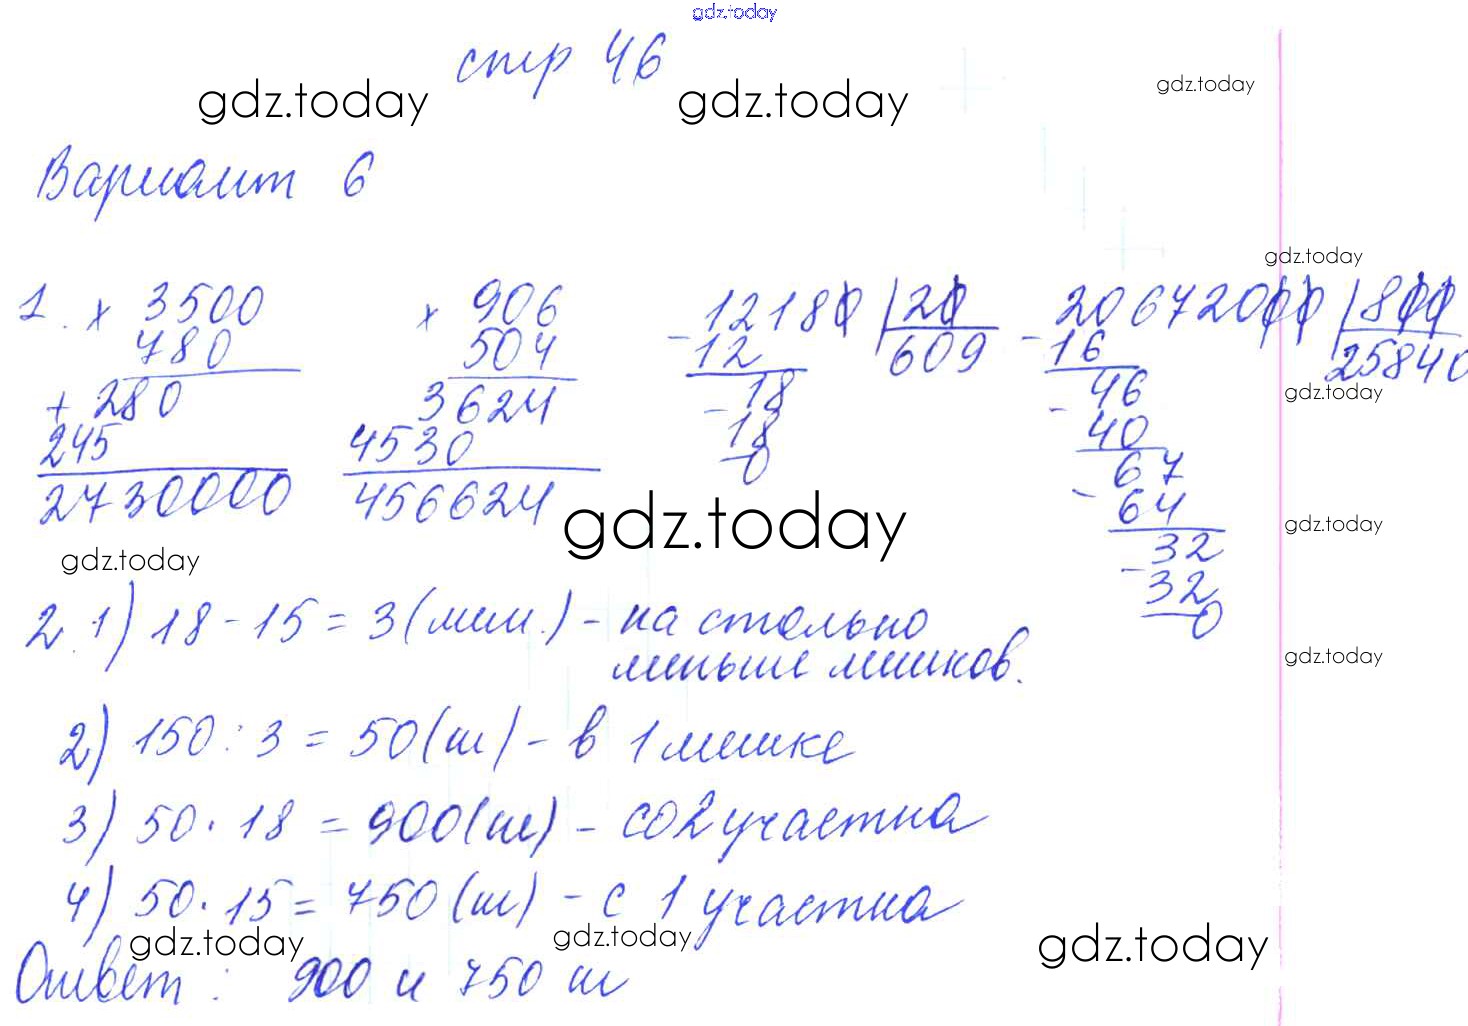 gdz.today
стр 46
gdz.today gdz.today gdz.today
Вариант 6
gdz.today
1. × 3500 × 906 - 12180 | 20 - 20672000 | 800
780 504 12 609 16 25840
+ 280 3624 18 46 gdz.today
245 4530 - 18 - 40
2730000 456624 0 67
gdz.today - 64 gdz.today
gdz.today - 32
32
0
2. 1) 18 - 15 = 3 (меш.) - на столько
меньше мешков. gdz.today
2) 150 : 3 = 50 (ш) - в 1 мешке
3) 50 · 18 = 900 (ш) - со 2 участка
4) 50 · 15 = 750 (ш) - с 1 участка
gdz.today gdz.today gdz.today
Ответ: 900 и 750 ш